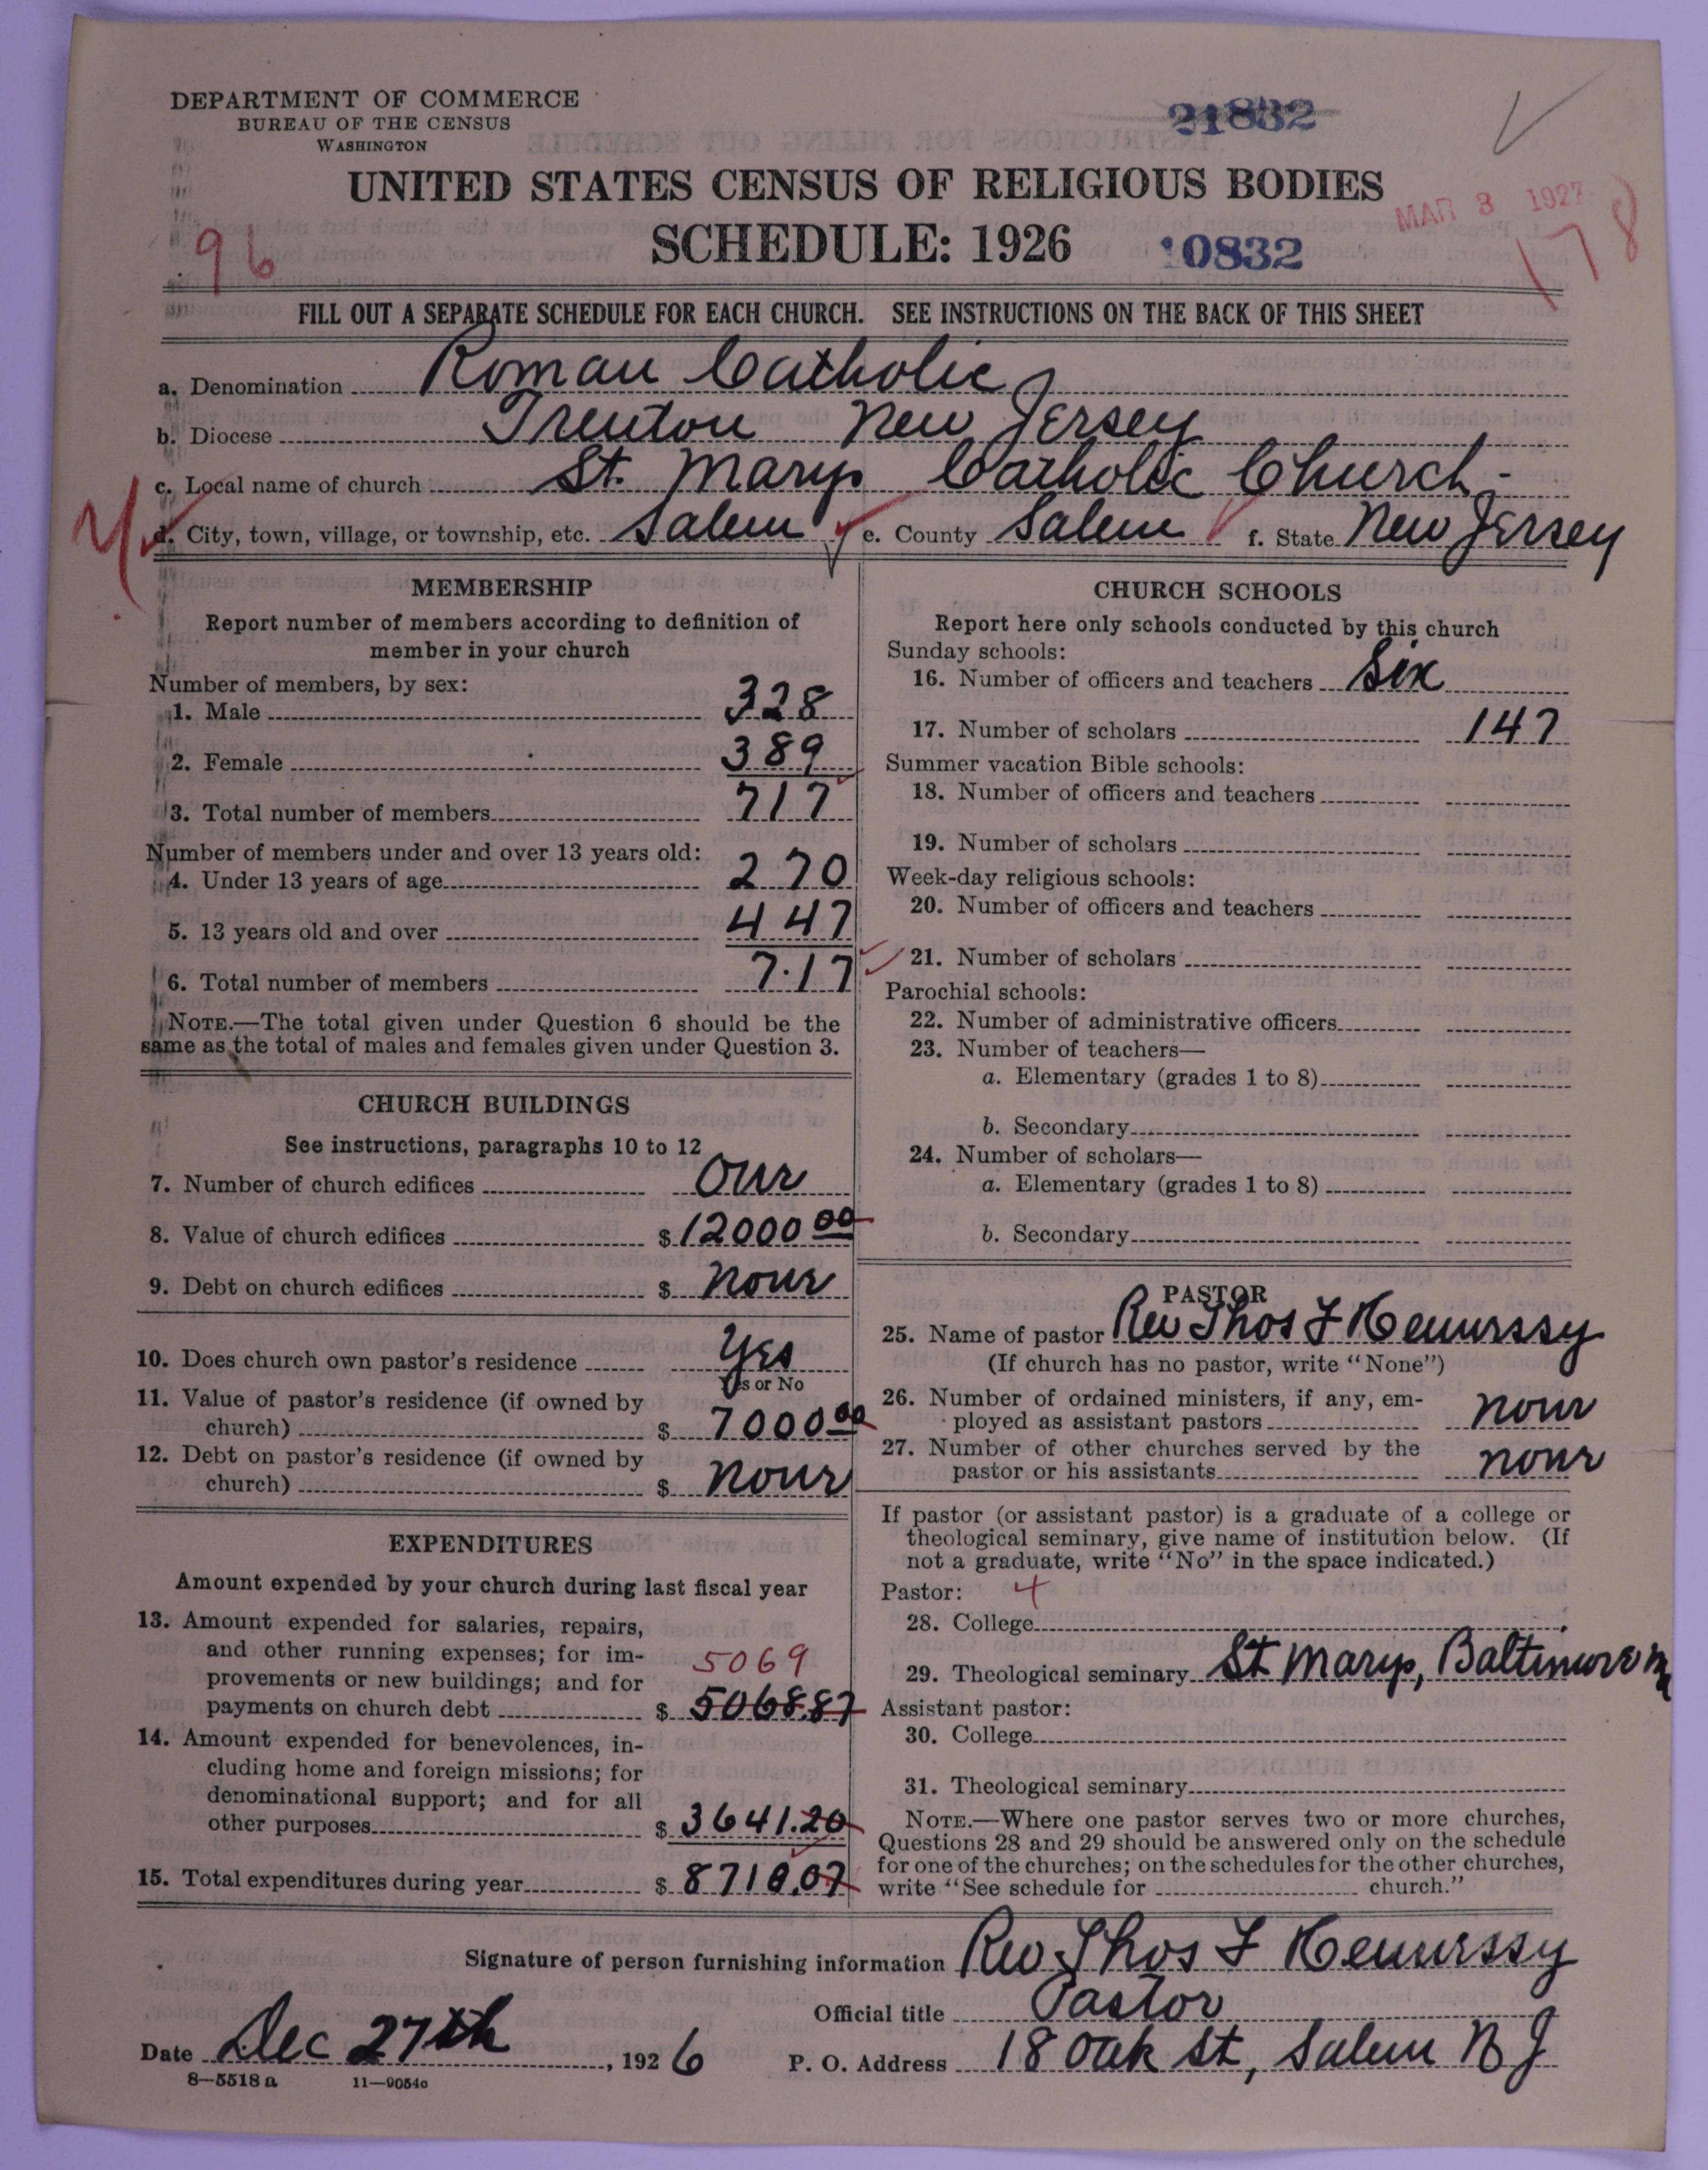 DEPARTMENT OF COMMERCE
BUREAU OF THE CENSUS
WASHINGTON
21832
UNITED STATES CENSUS OF RELIGIOUS BODIES
MAR 3 1927
SCHEDULE: 1926
10832
96
178
FILL OUT A SEPARATE SCHEDULE FOR EACH CHURCH. SEE INSTRUCTIONS ON THE BACK OF THIS SHEET
a. Denomination Roman Catholic
b. Diocese Trenton New Jersey
c. Local name of church St. Marys Catholic Church
d. City, town, village, or township, etc. Salem e. County Salem f. State New Jersey
MEMBERSHIP
Report number of members according to definition of
member in your church
Number of members, by sex:
1. Male 328
2. Female 389
3. Total number of members 717
Number of members under and over 13 years old:
4. Under 13 years of age 270
5. 13 years old and over 447
6. Total number of members 717
NOTE.—The total given under Question 6 should be the
same as the total of males and females given under Question 3.
CHURCH BUILDINGS
See instructions, paragraphs 10 to 12
7. Number of church edifices One
8. Value of church edifices $12000 00
9. Debt on church edifices $ None
10. Does church own pastor's residence Yes
Yes or No
11. Value of pastor's residence (if owned by
church) $ 7000 00
12. Debt on pastor's residence (if owned by
church) $ None
EXPENDITURES
Amount expended by your church during last fiscal year
13. Amount expended for salaries, repairs,
and other running expenses; for im-
provements or new buildings; and for 5069
payments on church debt $ 5068.87
14. Amount expended for benevolences, in-
cluding home and foreign missions; for
denominational support; and for all
other purposes $ 3641.20
15. Total expenditures during year $ 8710.07
CHURCH SCHOOLS
Report here only schools conducted by this church
Sunday schools:
16. Number of officers and teachers Six
17. Number of scholars 147
Summer vacation Bible schools:
18. Number of officers and teachers
19. Number of scholars
Week-day religious schools:
20. Number of officers and teachers
21. Number of scholars
Parochial schools:
22. Number of administrative officers
23. Number of teachers—
a. Elementary (grades 1 to 8)
b. Secondary
24. Number of scholars—
a. Elementary (grades 1 to 8)
b. Secondary
PASTOR
25. Name of pastor Rev Thos F Hennessy
(If church has no pastor, write "None")
26. Number of ordained ministers, if any, em-
ployed as assistant pastors None
27. Number of other churches served by the
pastor or his assistants None
If pastor (or assistant pastor) is a graduate of a college or
theological seminary, give name of institution below. (If
not a graduate, write "No" in the space indicated.)
Pastor: 4
28. College
29. Theological seminary St Marys, Baltimore M
Assistant pastor:
30. College
31. Theological seminary
NOTE.—Where one pastor serves two or more churches,
Questions 28 and 29 should be answered only on the schedule
for one of the churches; on the schedules for the other churches,
write "See schedule for church."
Signature of person furnishing information Rev Thos F Hennessy
Official title Pastor
Date Dec 27th, 1926 P. O. Address 18 Oak St, Salem N J
8—5518 a 11—9054c